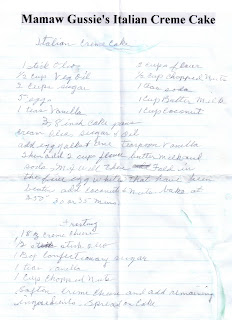 Mamaw Gussie's Italian Creme Cake
Italian Creme Cake
1 stick Oleo 2 cups flour
½ cup Veg Oil ½ cup chopped Nuts
2 cups sugar 1 tea soda
5 eggs 1 cup Butter Milk
1 tea Vanilla 1 cup Coconut
3 8 inch cake pans
cream oleo sugar & oil
add egg yolks & one teaspoon Vanilla
then add 2 cups flour butter milk and
soda. Mix well then fold in
the five egg whites that have been
beaten add coconut & nuts bake at
350° 30 or 35 mins
Frosting
1 8 oz Creme Cheese
½ stick oleo
1 Box confectionary sugar
1 tea vanilla
1 cup chopped Nuts
Soften Creme Cheese and add remaining
ingredients. Spread on Cake